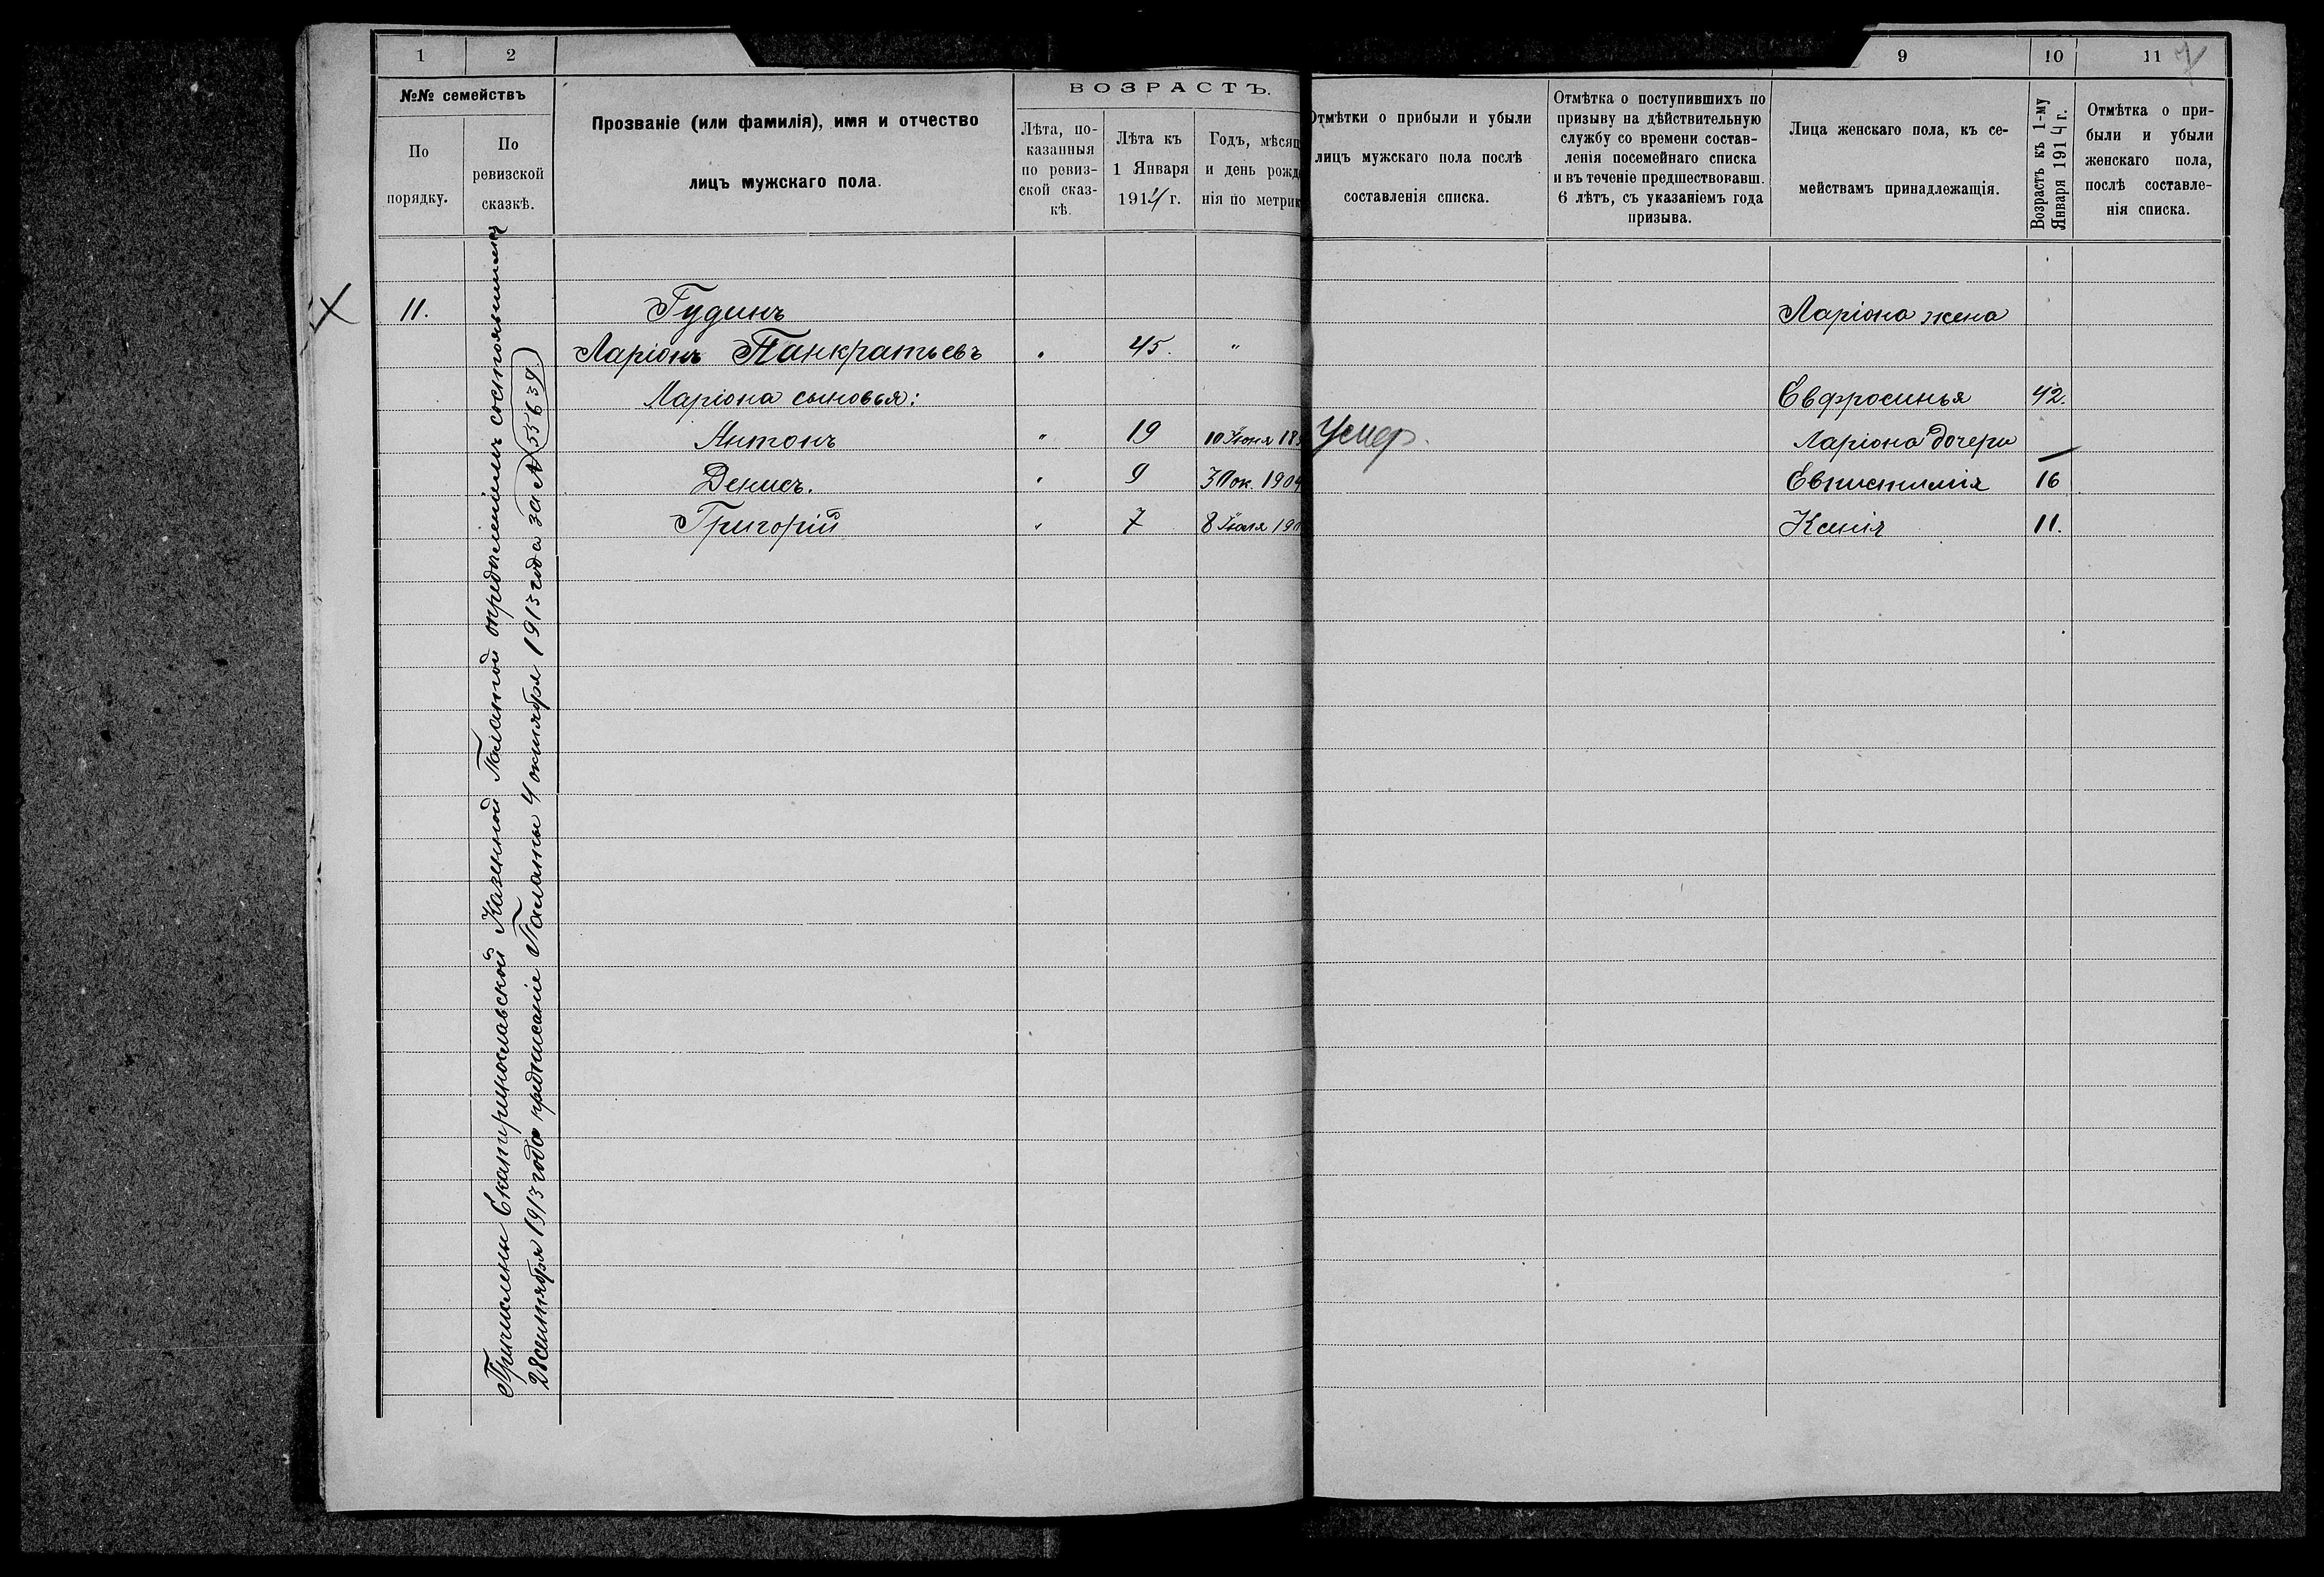 1
2
№№ семействъ
По порядку.
По ревизской сказкѣ.
Прозваніе (или фамилія), имя и отчество
лицъ мужскаго пола.
ВОЗРАСТЪ.
Лѣта, по-
казанныя
по ревиз-
ской сказ-
кѣ.
Лѣта къ
1 Января
1914 г.
Годъ, мѣсяц
и день рожд
нія по метрик
11.
Гудинъ
Ларіонъ Панкратьевъ
45.
"
Ларіона сыновья:
Антонъ
"
19
10 Іюня 18
Денисъ.
"
9
3 ок. 1904
Григорій
"
7
8 Іюля 190
Причислены Екатеринославской Казенной Палатой опредѣленіемъ состоявшимся
28 сентября 1913 года предписаніе Палаты 4 октября 1913 года за № 55639
9
10
11
7
Отмѣтки о прибыли и убыли
лицъ мужскаго пола послѣ
составленія списка.
Отмѣтка о поступившихъ по
призыву на дѣйствительную
службу со времени состав-
ленія посемейнаго списка
и въ теченіе предшествовавш.
6 лѣтъ, съ указаніемъ года
призыва.
Лица женскаго пола, къ се-
мействамъ принадлежащія.
Возрастъ къ 1-му
Января 1914 г.
Отмѣтка о при-
были и убыли
женскаго пола,
послѣ составле-
нія списка.
Ларіона жена
Евфросинья
42.
Умер.
Ларіона дочери
Евпистимія
16
Ксенія
11.